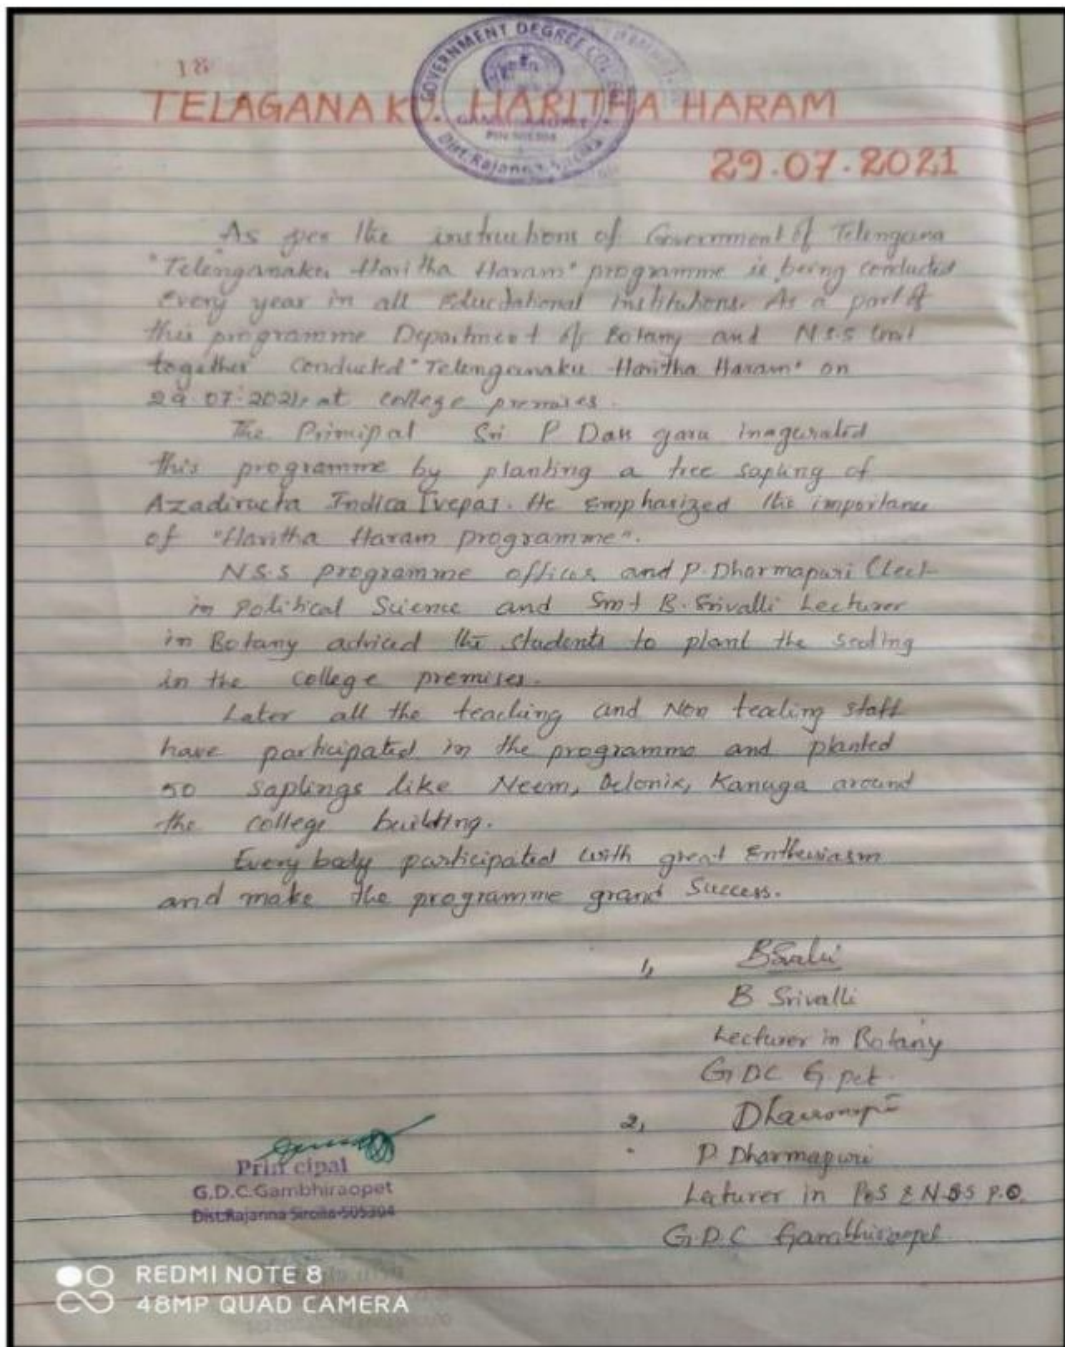 18
TELAGANA KU. HARITHA HARAM
GOVERNMENT DEGREE COLLEGE
PIN 505304
Dist. Rajanna Sircilla
29.07.2021
As per the instructions of Government of Telengana
"Telenganaku Haritha Haram" programme is being conducted
every year in all Educational Institutions. As a part of
this programme Department of Botany and N.S.S Unit
together conducted "Telenganaku Haritha Haram" on
29 07.2021, at college premises.
The Principal Sri P Dass garu inagurated
this programme by planting a tree sapling of
Azadiracta Indica [vepa]. He Emphasized the importance
of "Haritha Haram programme".
N.S.S programme officer and P. Dharmapuri (Lect
in Political Science and Smt B. Srivalli Lecturer
in Botany adviced the students to plant the
in the college premises.
Later all the teaching and Non teaching staff
have participated in the programme and planted
50 saplings like Neem, Delonix, Kanuga around
the college building.
Every body participated with great Enthusiasm
and make the programme grand Success.
1,
B Srivalli
Lecturer in Botany
G.DC G.pet.
2,
P. Dharmapuri
Lecturer in Pol.S & N.SS P.O.
G.D.C Gambhiraopet
Principal
G.D.C.Gambhiraopet
Dist:Rajanna Sircilla-505304
REDMI NOTE 8
48MP QUAD CAMERA